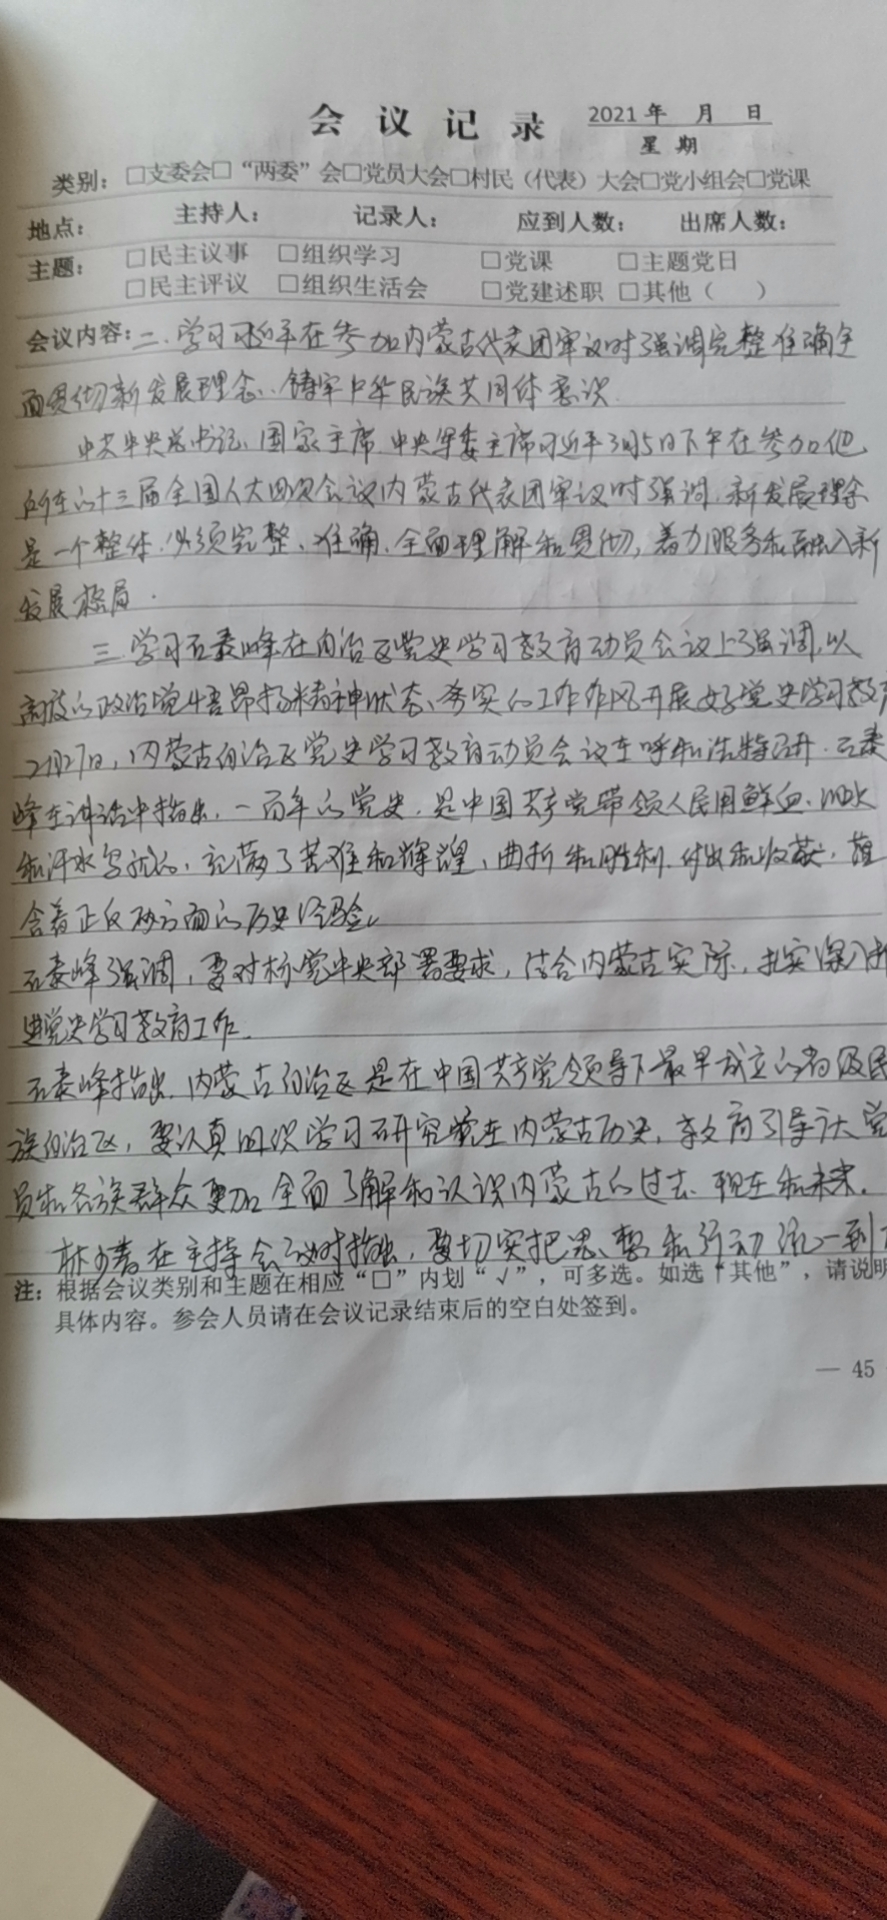 会议记录 2021年 月 日
星期
类别：□支委会□“两委”会□党员大会□村民（代表）大会□党小组会□党课
地点： 主持人： 记录人： 应到人数： 出席人数：
主题： □民主议事 □组织学习 □党课 □主题党日
□民主评议 □组织生活会 □党建述职 □其他（ ）
会议内容：二、学习习近平在参加内蒙古代表团审议时强调完整准确全
面贯彻新发展理念、铸牢中华民族共同体意识
中共中央总书记、国家主席、中央军委主席习近平3月5日下午在参加他
所在的十三届全国人大四次会议内蒙古代表团审议时强调，新发展理念
是一个整体，必须完整、准确、全面理解和贯彻，着力服务和融入新
发展格局.
三、学习石泰峰在自治区党史学习教育动员会议上强调，以
高度的政治觉悟昂扬精神状态、务实的工作作风开展好党史学习教育
2月27日，内蒙古自治区党史学习教育动员会议在呼和浩特召开.石泰
峰在讲话中指出，一百年的党史，是中国共产党带领人民用鲜血、泪水
和汗水写就的，充满了苦难和辉煌、曲折和胜利、付出和收获，蕴
含着正反两方面的历史经验。
石泰峰强调，要对标党中央部署要求，结合内蒙古实际，扎实深入推
进党史学习教育工作.
石泰峰指出，内蒙古自治区是在中国共产党领导下最早成立的省级民
族自治区，要认真组织学习研究党在内蒙古历史，教育引导广大党
员和各族群众更加全面了解和认识内蒙古的过去、现在和未来.
林少春在主持会议时指出，要切实把思、想和行动统一到
注：根据会议类别和主题在相应“□”内划“√”，可多选。如选“其他”，请说明
具体内容。参会人员请在会议记录结束后的空白处签到。
— 45